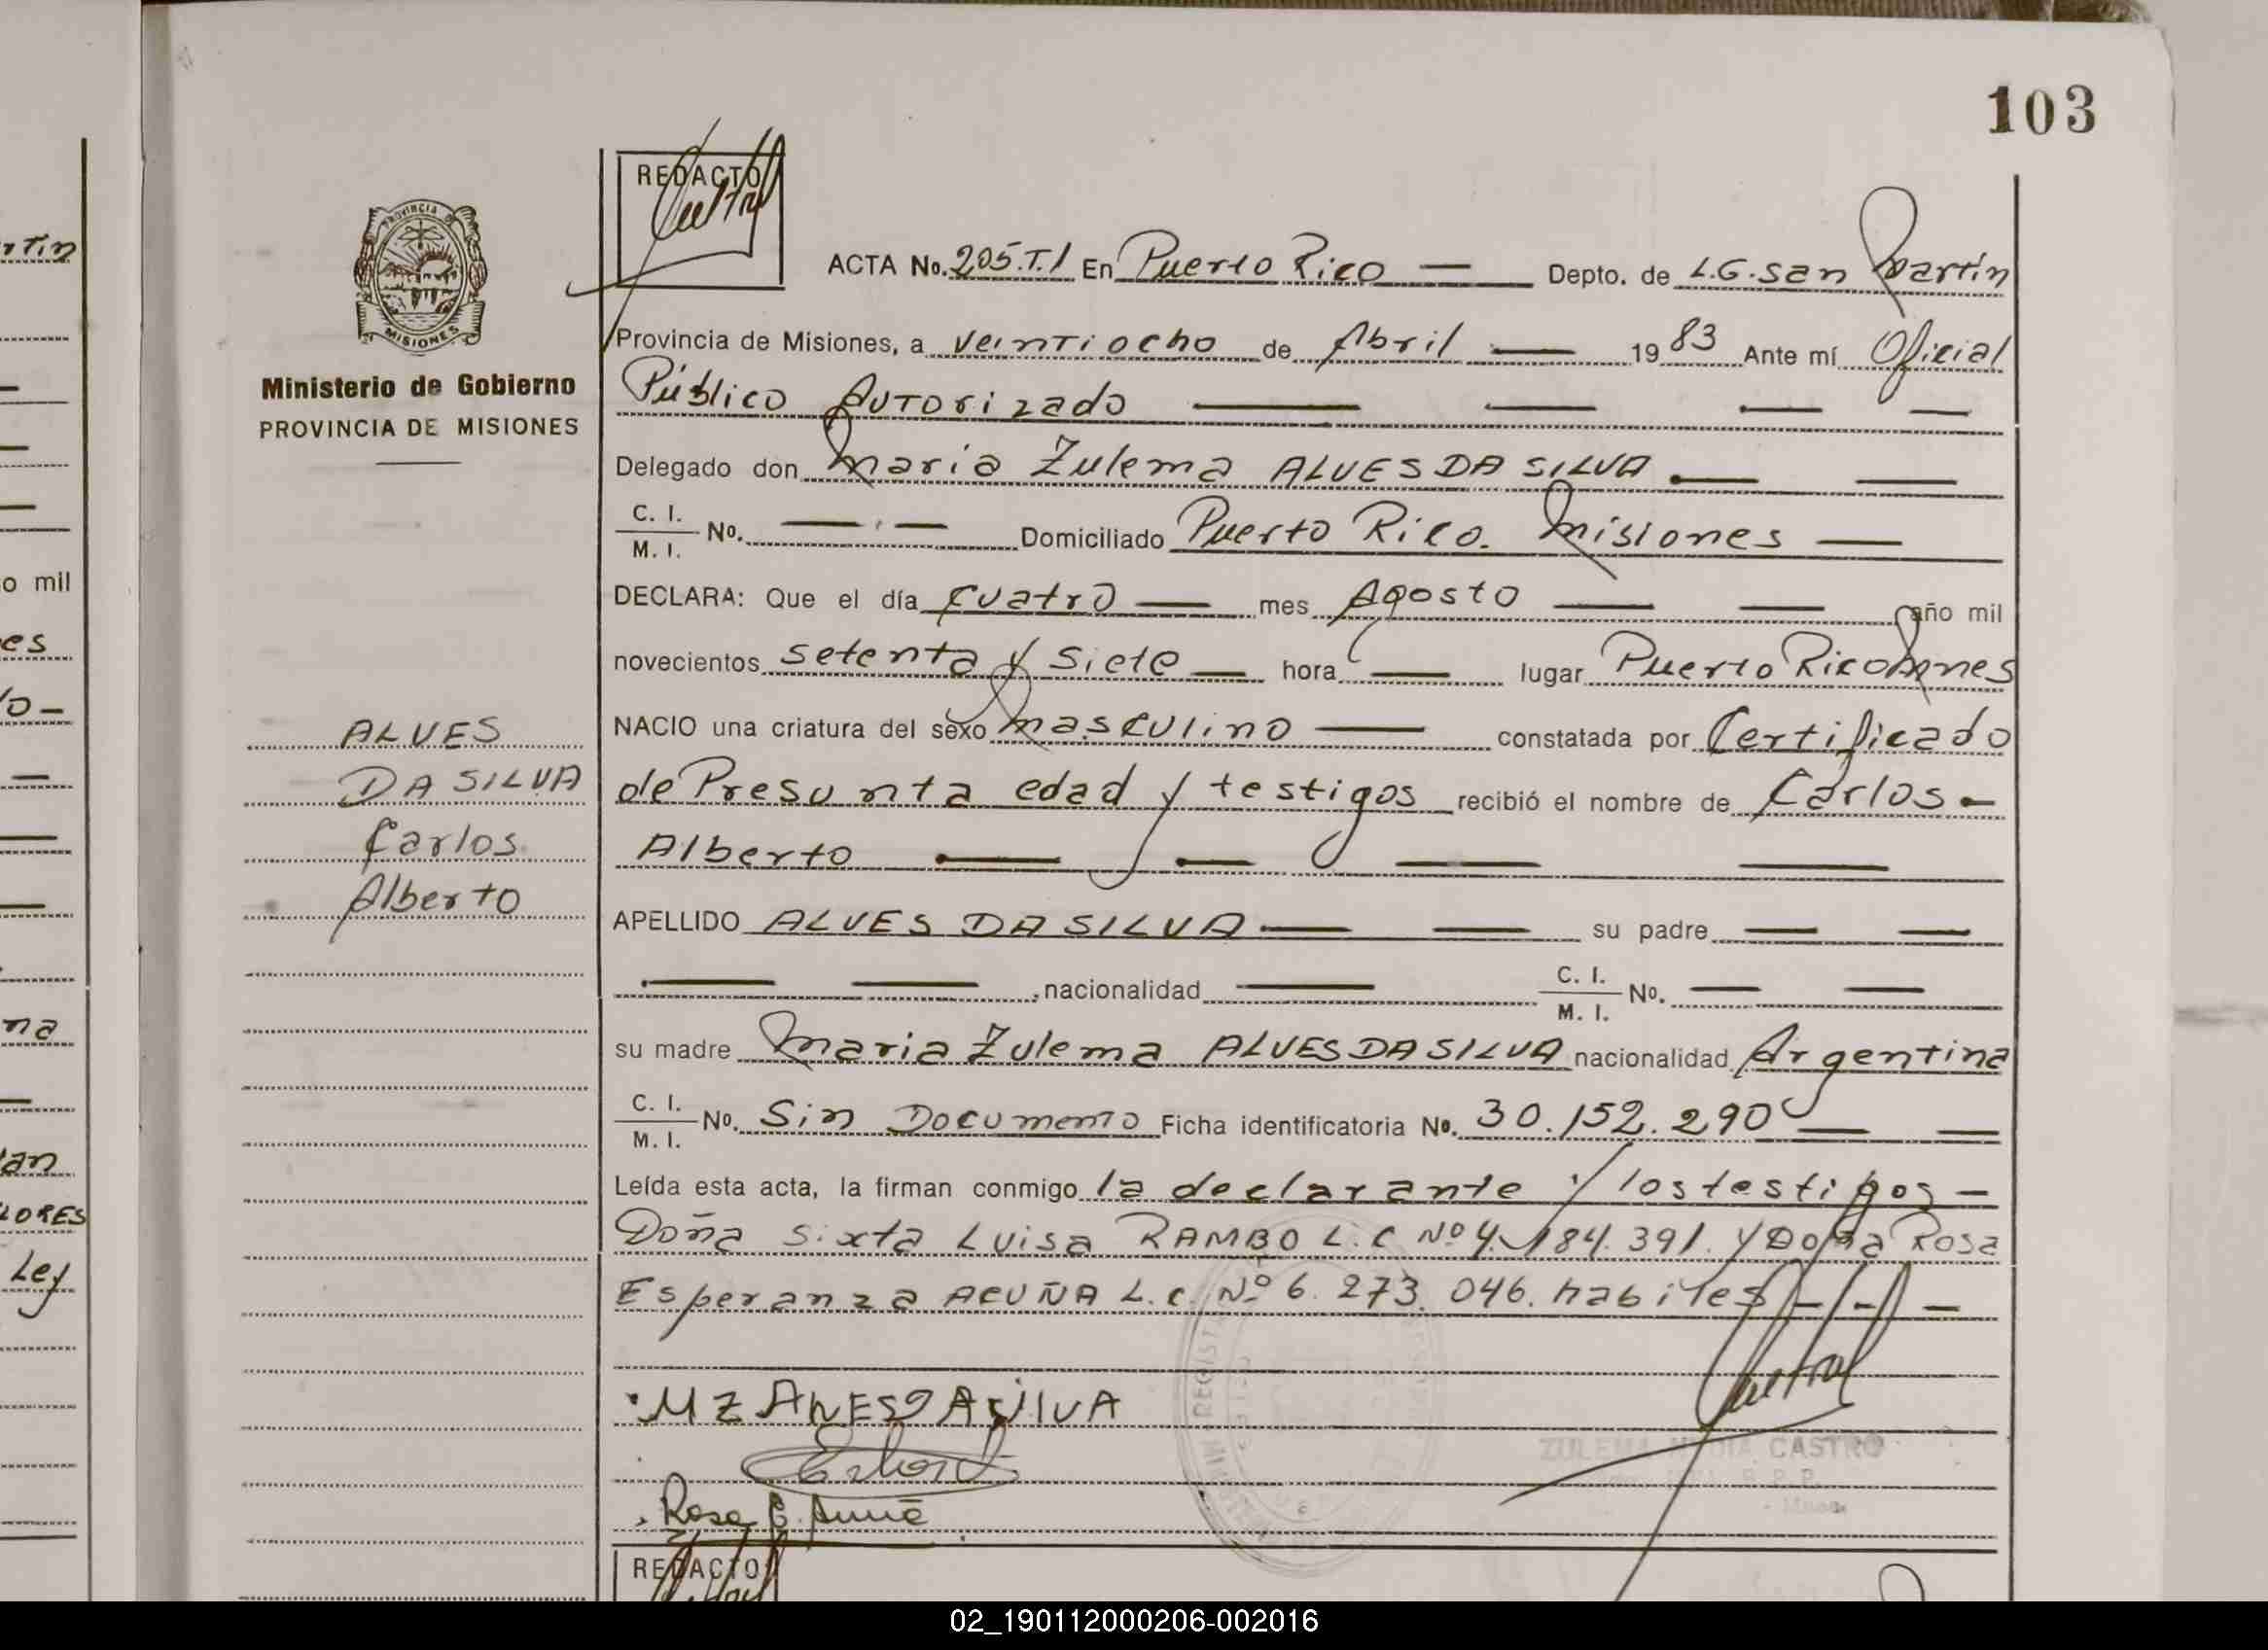 103
REDACTO
ACTA No. 205.T.1 En Puerto Rico — Depto. de L.G. san Martín
Provincia de Misiones, a veintiocho de Abril — 1983 Ante mí Oficial
Público Autorizado — — — —
Delegado don Maria Zulema ALVES DA SILVA — —
C. I. / M. I. No. — — Domiciliado Puerto Rico. Misiones —
DECLARA: Que el día cuatro — mes Agosto — — año mil
novecientos setenta y siete — hora — lugar Puerto Rico Mnes
NACIO una criatura del sexo masculino — constatada por Certificado
de Presunta edad y testigos recibió el nombre de Carlos —
Alberto — — — —
APELLIDO ALVES DA SILVA — — su padre — —
— — , nacionalidad — C. I. / M. I. No. — —
su madre Maria Zulema ALVES DA SILVA nacionalidad Argentina
C. I. / M. I. No. Sin Documento Ficha identificatoria No. 30.152.290 — —
Leída esta acta, la firman conmigo la declarante y los testigos —
Doña Sixta Luisa RAMBO L.C Nº 4.184.391. y Doña Rosa
Esperanza ACUÑA L.C. Nº 6.273.046. habiles — - —
MZ ALVES DA SILVA
Rosa E. Acuña
ZULEMA MARIA CASTRO
REDACTO
PROVINCIA DE
MISIONES
Ministerio de Gobierno
PROVINCIA DE MISIONES
ALVES
DA SILVA
Carlos
Alberto
rtin
o mil
es
o —
na
an
LORES
Ley
02_190112000206-002016